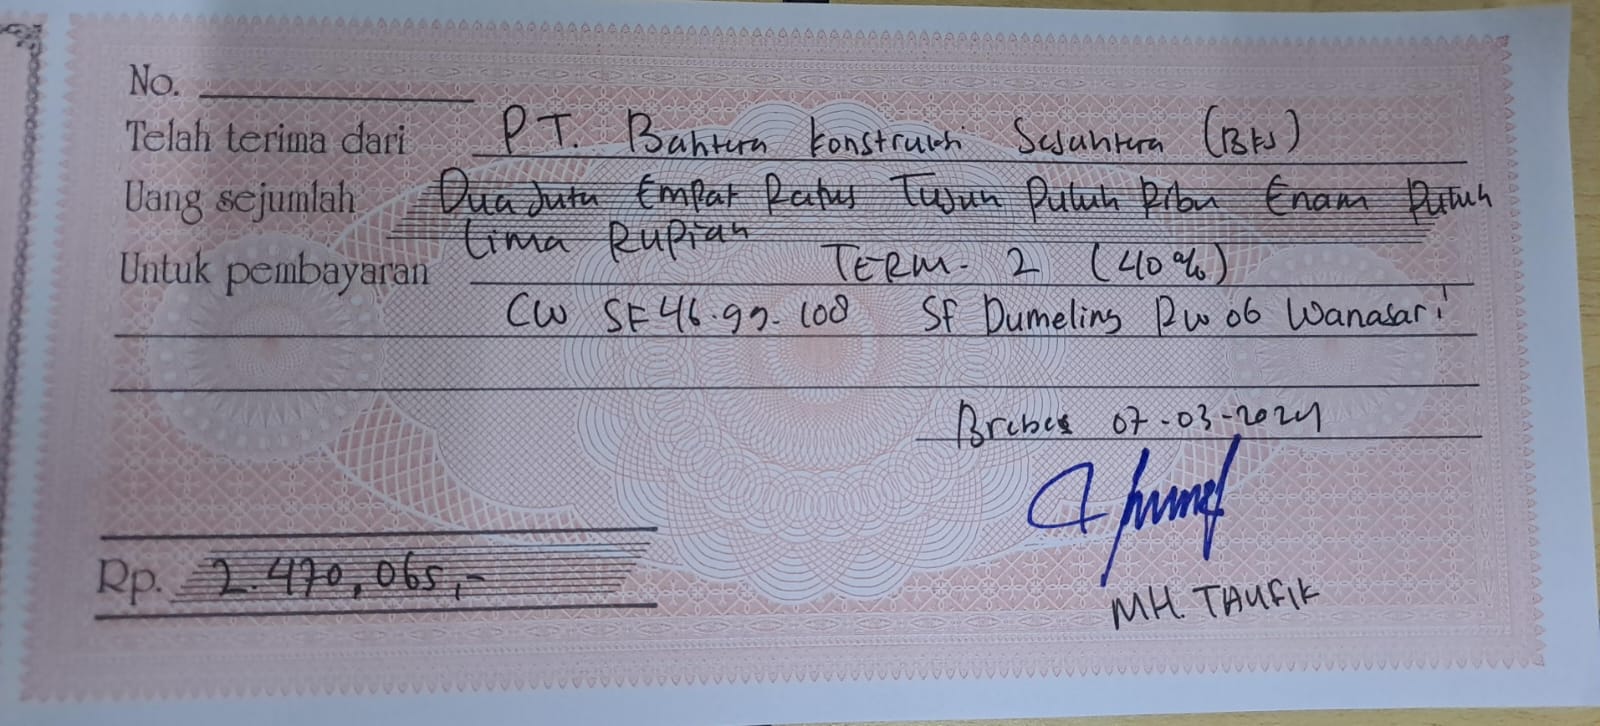 No.
Telah terima dari PT. Bahtera Konstruksi Sejahtera (BKS)
Uang sejumlah Dua Juta Empat Ratus Tujuh Puluh Ribu Enam Puluh
Lima Rupiah
Untuk pembayaran TERM. 2 (40%)
CW SF 46.99.108 SF Dumeling RW 06 Wanasari
Brebes 07-03-2024
Rp. 2.470,065,-
MH. TAUFIK